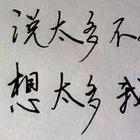 说太多不
想太多我